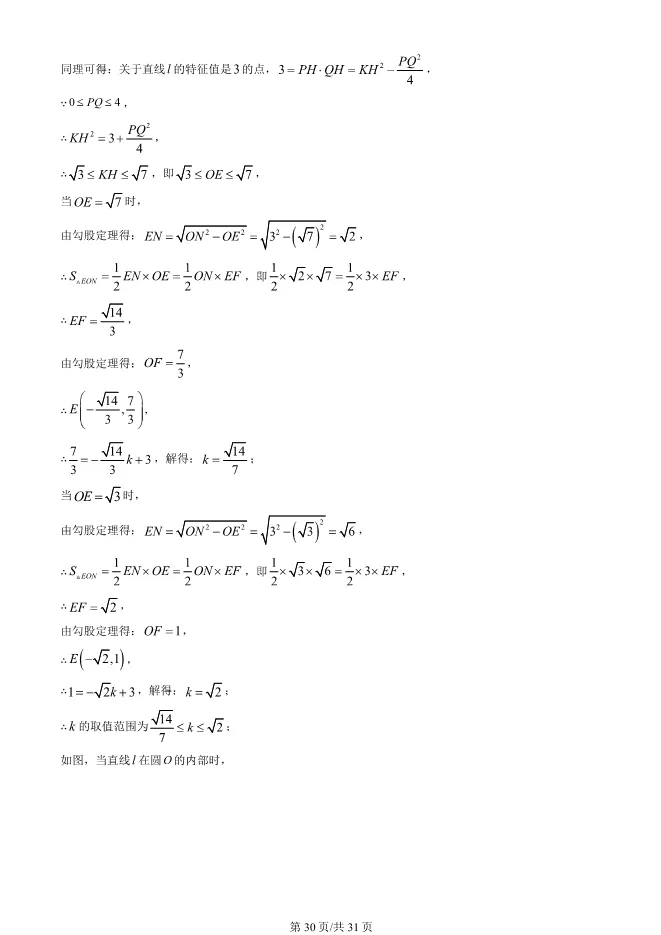 同理可得：关于直线 l 的特征值是 3 的点，3 = PH · QH = KH² − PQ²/4，
∵0 ≤ PQ ≤ 4，
∴KH² = 3 + PQ²/4，
∴√3 ≤ KH ≤ √7，即 √3 ≤ OE ≤ √7，
当 OE = √7 时，
由勾股定理得：EN = √(ON² − OE²) = √(3² − (√7)²) = √2，
∴S△EON = 1/2 EN × OE = 1/2 ON × EF，即 1/2 × √2 × √7 = 1/2 × 3 × EF，
∴EF = √14/3，
由勾股定理得：OF = 7/3，
∴E(−√14/3, 7/3)，
∴7/3 = −√14/3 k + 3，解得：k = √14/7；
当 OE = √3 时，
由勾股定理得：EN = √(ON² − OE²) = √(3² − (√3)²) = √6，
∴S△EON = 1/2 EN × OE = 1/2 ON × EF，即 1/2 × √3 × √6 = 1/2 × 3 × EF，
∴EF = √2，
由勾股定理得：OF = 1，
∴E(−√2,1)，
∴1 = −√2k + 3，解得：k = √2；
∴k 的取值范围为 √14/7 ≤ k ≤ √2；
如图，当直线 l 在圆 O 的内部时，
第 30 页/共 31 页